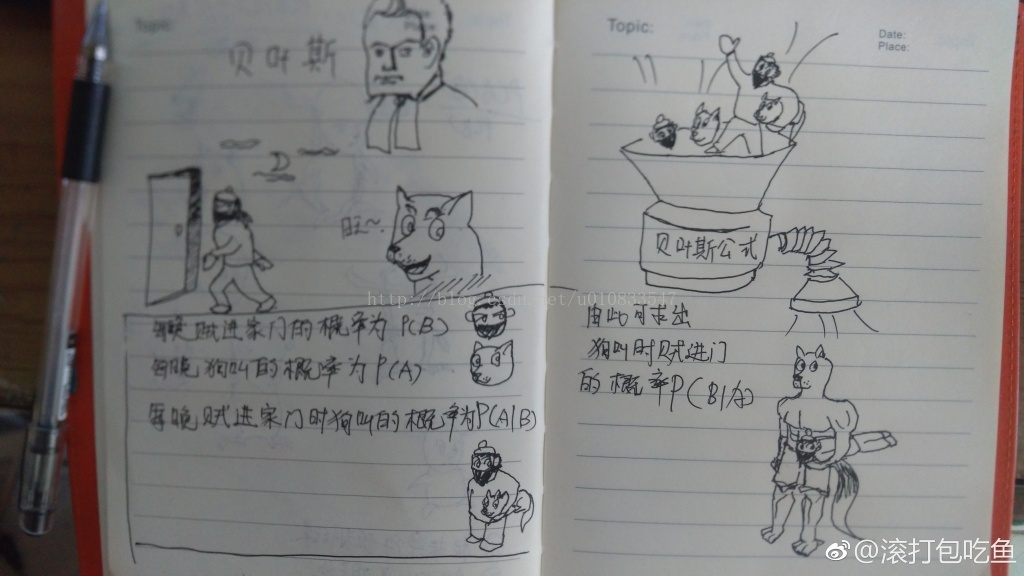 Topic:
贝叶斯
旺~
每晚贼进家门的概率为 P(B)
每晚狗叫的概率为P(A)
每晚贼进家门时狗叫的概率为P(A|B)
Topic:
Date:
Place:
贝叶斯公式
由此可求出
狗叫时贼进门
的概率P(B|A)
@滚打包吃鱼